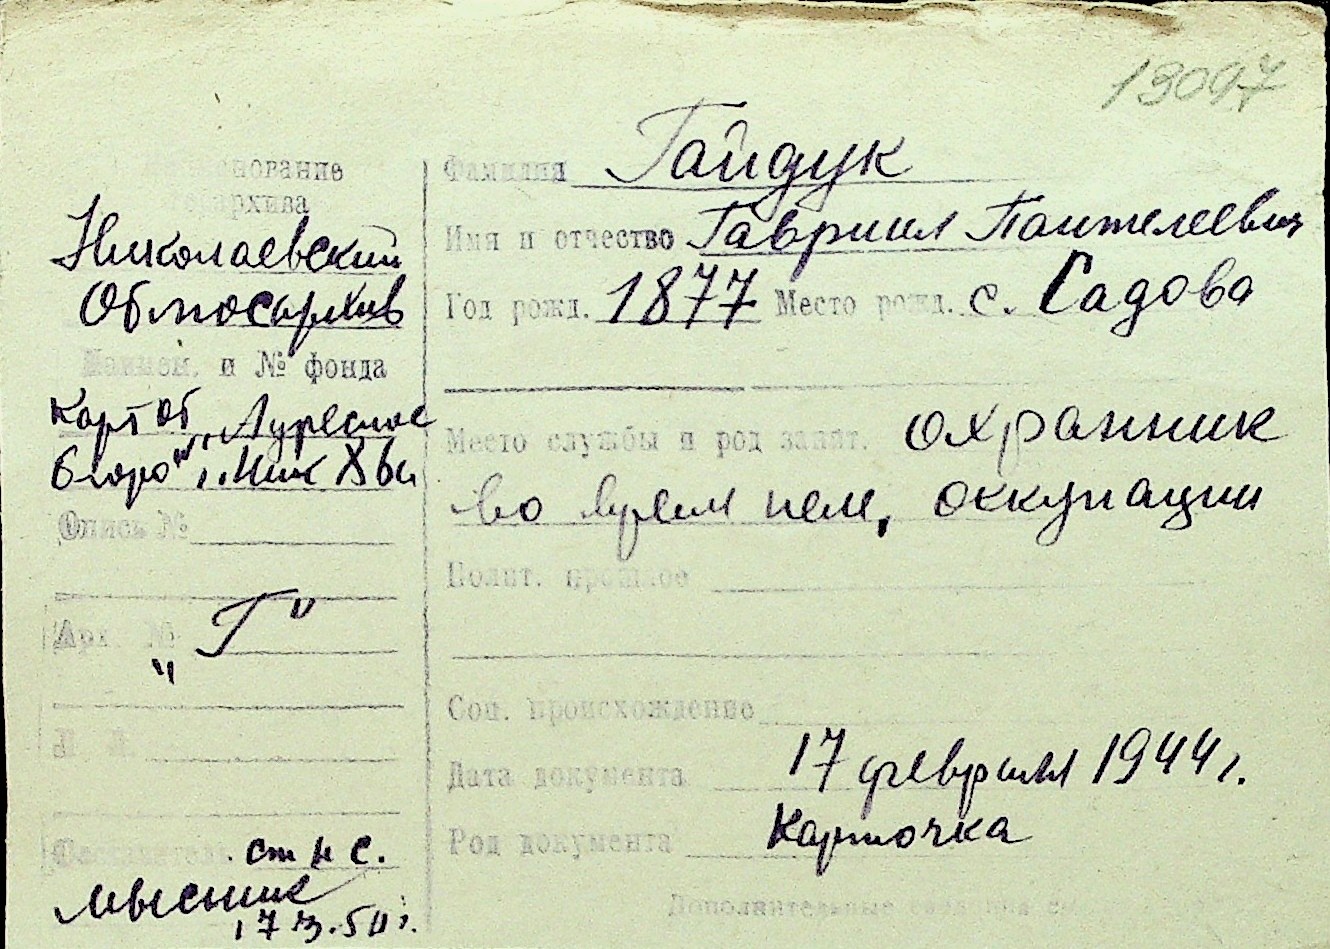 13097
Наименование
госархива
Николаевский
Облгосархив
Наимен. и № фонда
Картот. „Адресное
бюро"
Опись №
Арх. №
„Г"
Л. Л.
Составитель ст н с.
Мысник
17.3.50 г.
Фамилия Гайдук
Имя и отчество Гавриил Пантелеевич
Год рожд. 1877 Место рожд. с. Садова
Место службы и род занят. охранник
во время нем, оккупации
Полит. прошлое
Соц. происхождение
Дата документа 17 февраля 1944 г.
Род документа карточка
Дополнительные сведения